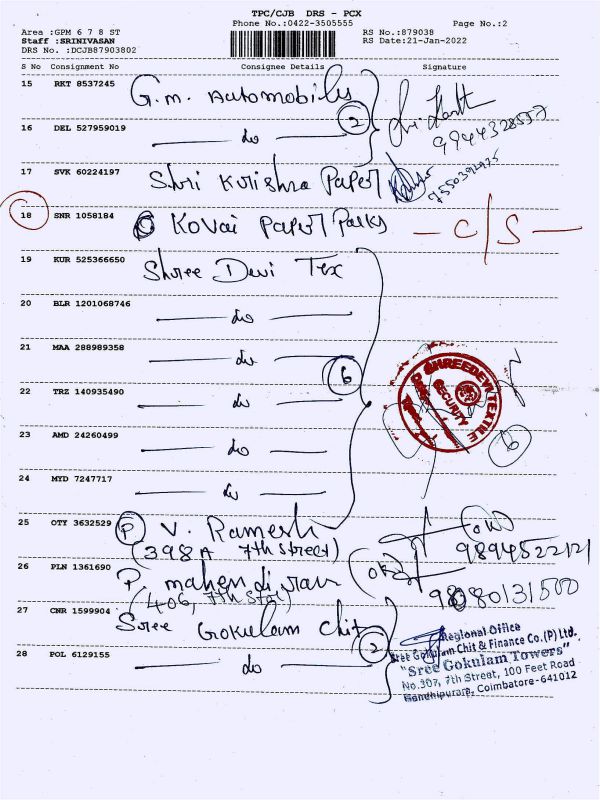 TPC/CJB DRS - PCX
Phone No.:0422-3505555 Page No.:2
Area :GPM 6 7 8 ST RS No.:879038
Staff :SRINIVASAN RS Date:21-Jan-2022
DRS No. :DCJB87903802
S No Consignment No Consignee Details Signature
15 RKT 8537245 G.m. Automobiles
2
16 DEL 527959019 do 9944328557
17 SVK 60224197 Shri Krishna Paper
18 SNR 1058184 Kovai Paper Parks - C/S -
19 KUR 525366650 Shree Devi Tex
20 BLR 1201068746 do
21 MAA 288989358 do
6
SHREEDEVI TEXTILE
SECURITY
22 TRZ 140935490 do
23 AMD 24260499 do
6
24 MYD 7247717 do
25 OTY 3632529 P V. Ramesh
(398A 7th Street) 9894522121
26 PLN 1361690 P. mahendiran
(406, 7th Str) 9080131500
27 CNR 1599904 Sree Gokulam Chit
2
28 POL 6129155 do
Regional Office
Sree Gokulam Chit & Finance Co.(P) Ltd.
"Sree Gokulam Towers"
No.307, 7th Street, 100 Feet Road
Gandhipuram, Coimbatore-641012